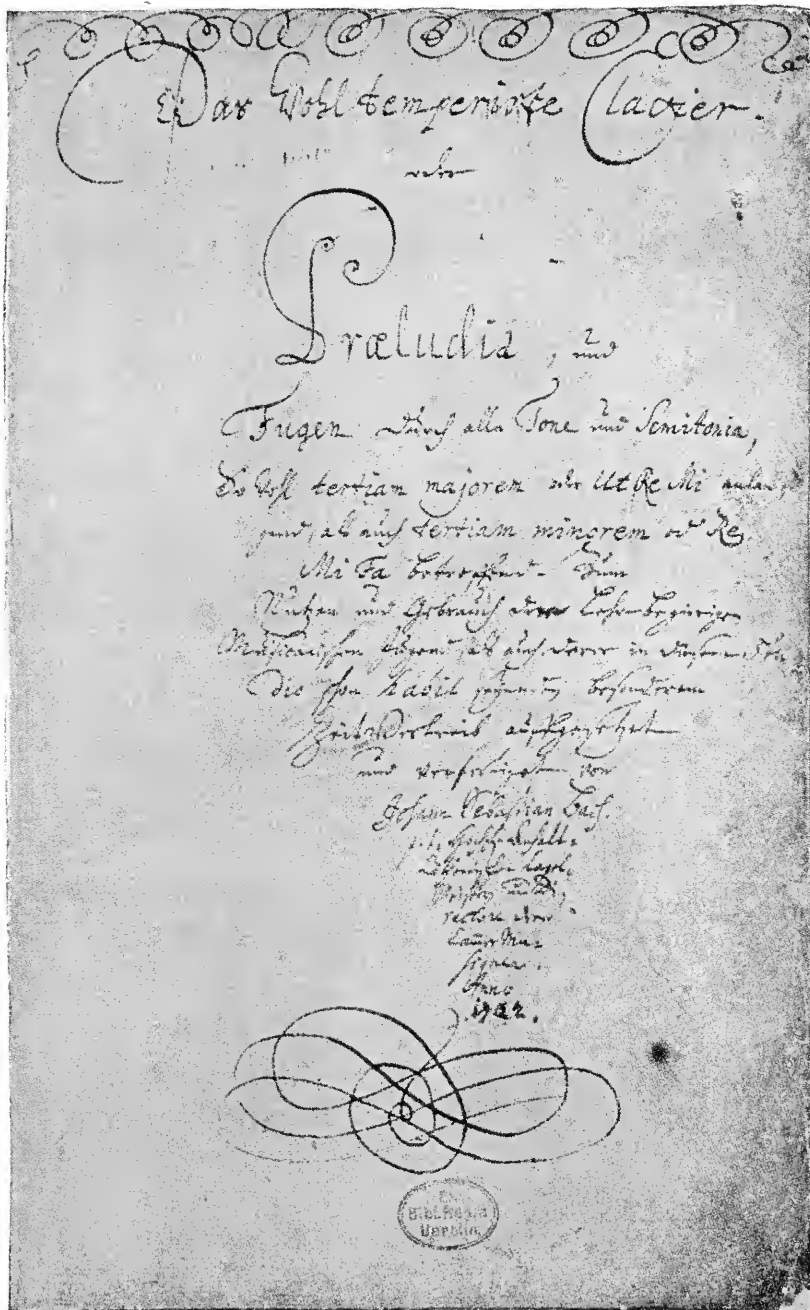 Das Wohltemperirte Clavier.
oder
Præludia, und
Fugen durch alle Tone und Semitonia,
So wohl tertiam majorem oder Ut Re Mi anlan-
gend, als auch tertiam minorem oder Re
Mi Fa betreffend. Zum
Nutzen und Gebrauch der Lehrbegierigen
Musicalischen Jugend, als auch derer in diesem stu-
dio schon habil seyenden besonderem
Zeitvertreib auffgesetzet
und verfertiget von
Johann Sebastian Bach.
p. t. Hochfürstl. Anhalt-
Cöthenischen Capel-
Meistern und Di-
rectore derer
Cammer Mu-
siquen.
Anno
1722.
Ex
Bibl. Regia
Berolin.